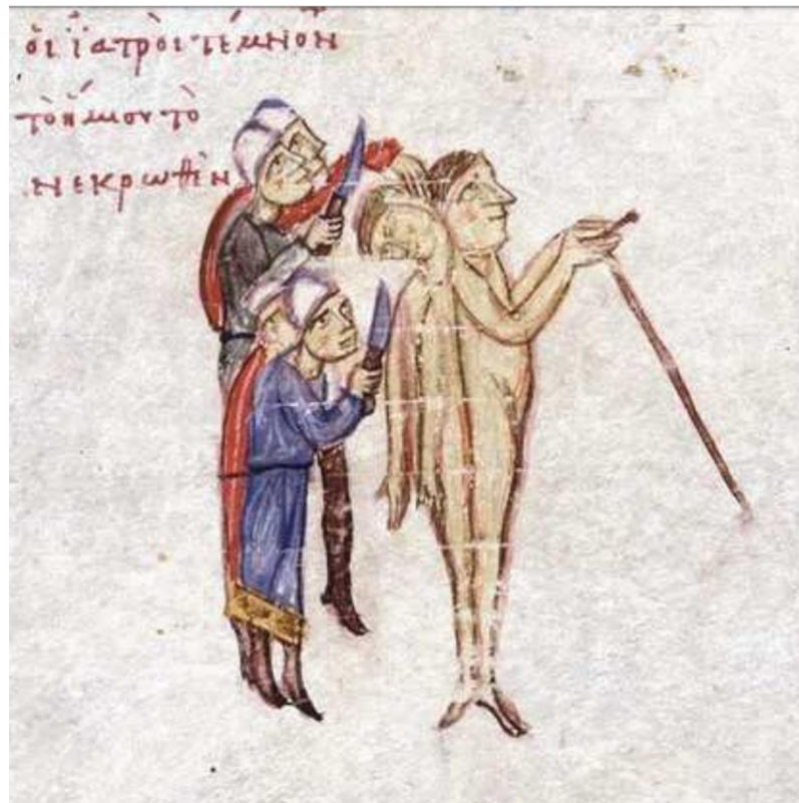 οἱ ἰατροὶ τέμνον
τὸ ἥμισυ τὸ
νεκρωθὲν